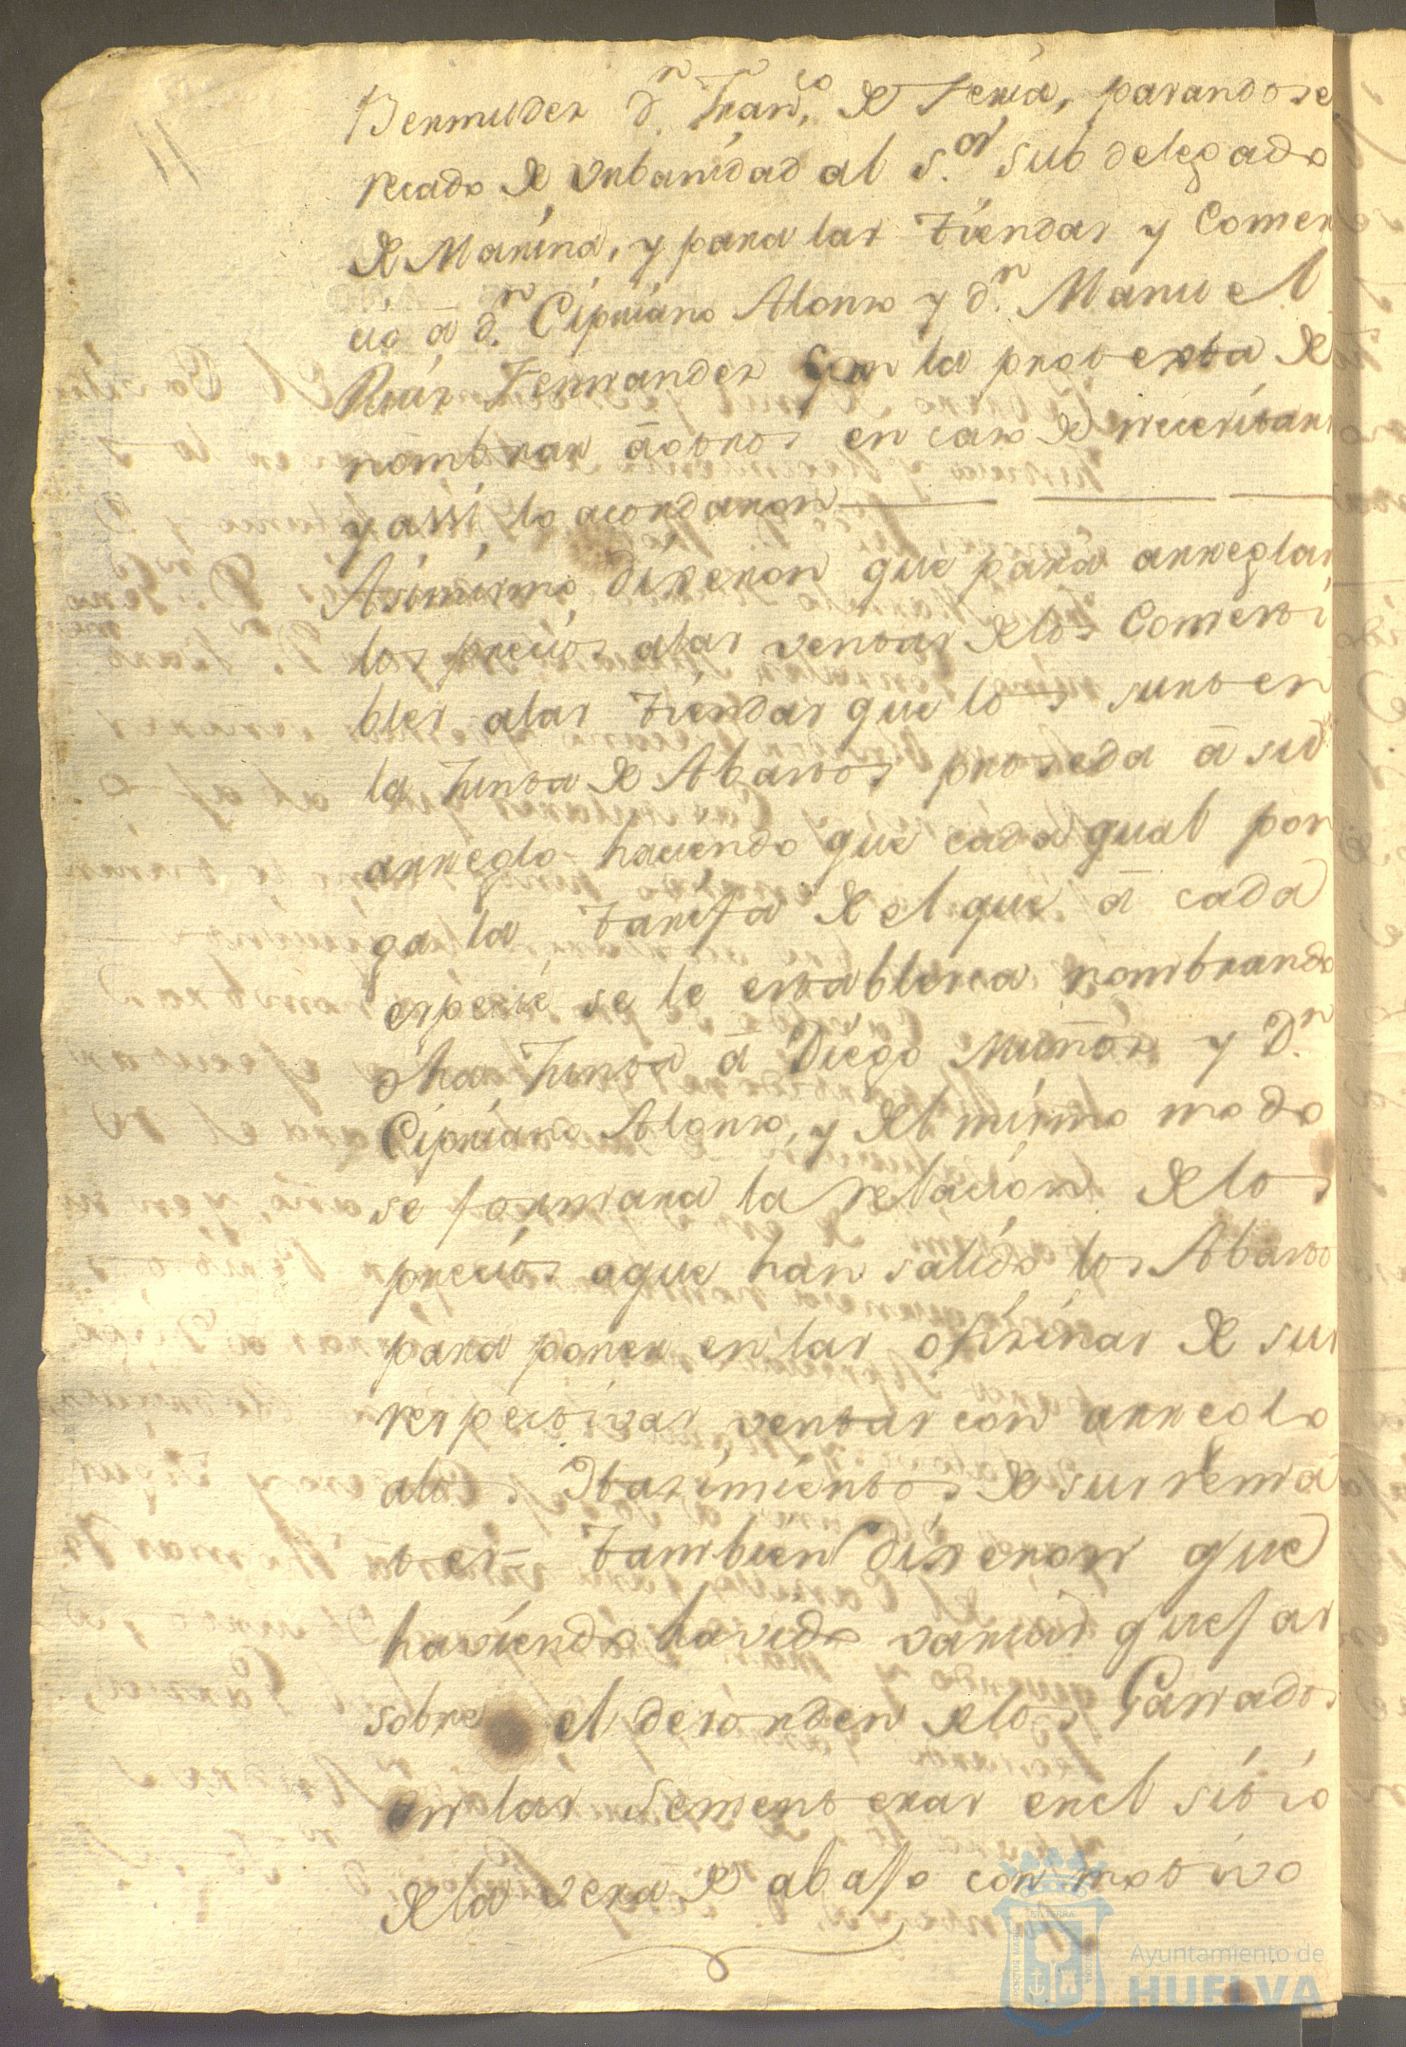 Bermudez d.n Fran.co de Feria, pasandose
recado de urbanidad al s.or subdelegado
de Marina, y para las tiendas y Comer
cio á d.n Cipriano Alonso y d.n Manuel
Ruiz Fernandez con la protexta de
nombrar á otros en caso de necesitarse
y assi lo acordaron
Asimismo dixeron que para arreglar
los precios a las ventas de los Comesti
bles a las tiendas que los surten
la Junta de Abastos proseda á su
arreglo haciendo que cada qual pon
ga la tarifa de el que á cada
especie se le establesca nombrando
dha Junta á Diego Muñoz y D.n
Cipriano Alonso, y del mismo modo
se formara la relacion de los
precios a que han salido los Abastos
para poner en las ofizinas de sus
respectivas ventas con arreglo
a los de sus rema
tes tambien dixeron que
haviendo havido varias quejas
sobre el desorden de los Ganados
en las sementeras en el sitio
de la vera de abajo con motivo
Ayuntamiento de
HUELVA